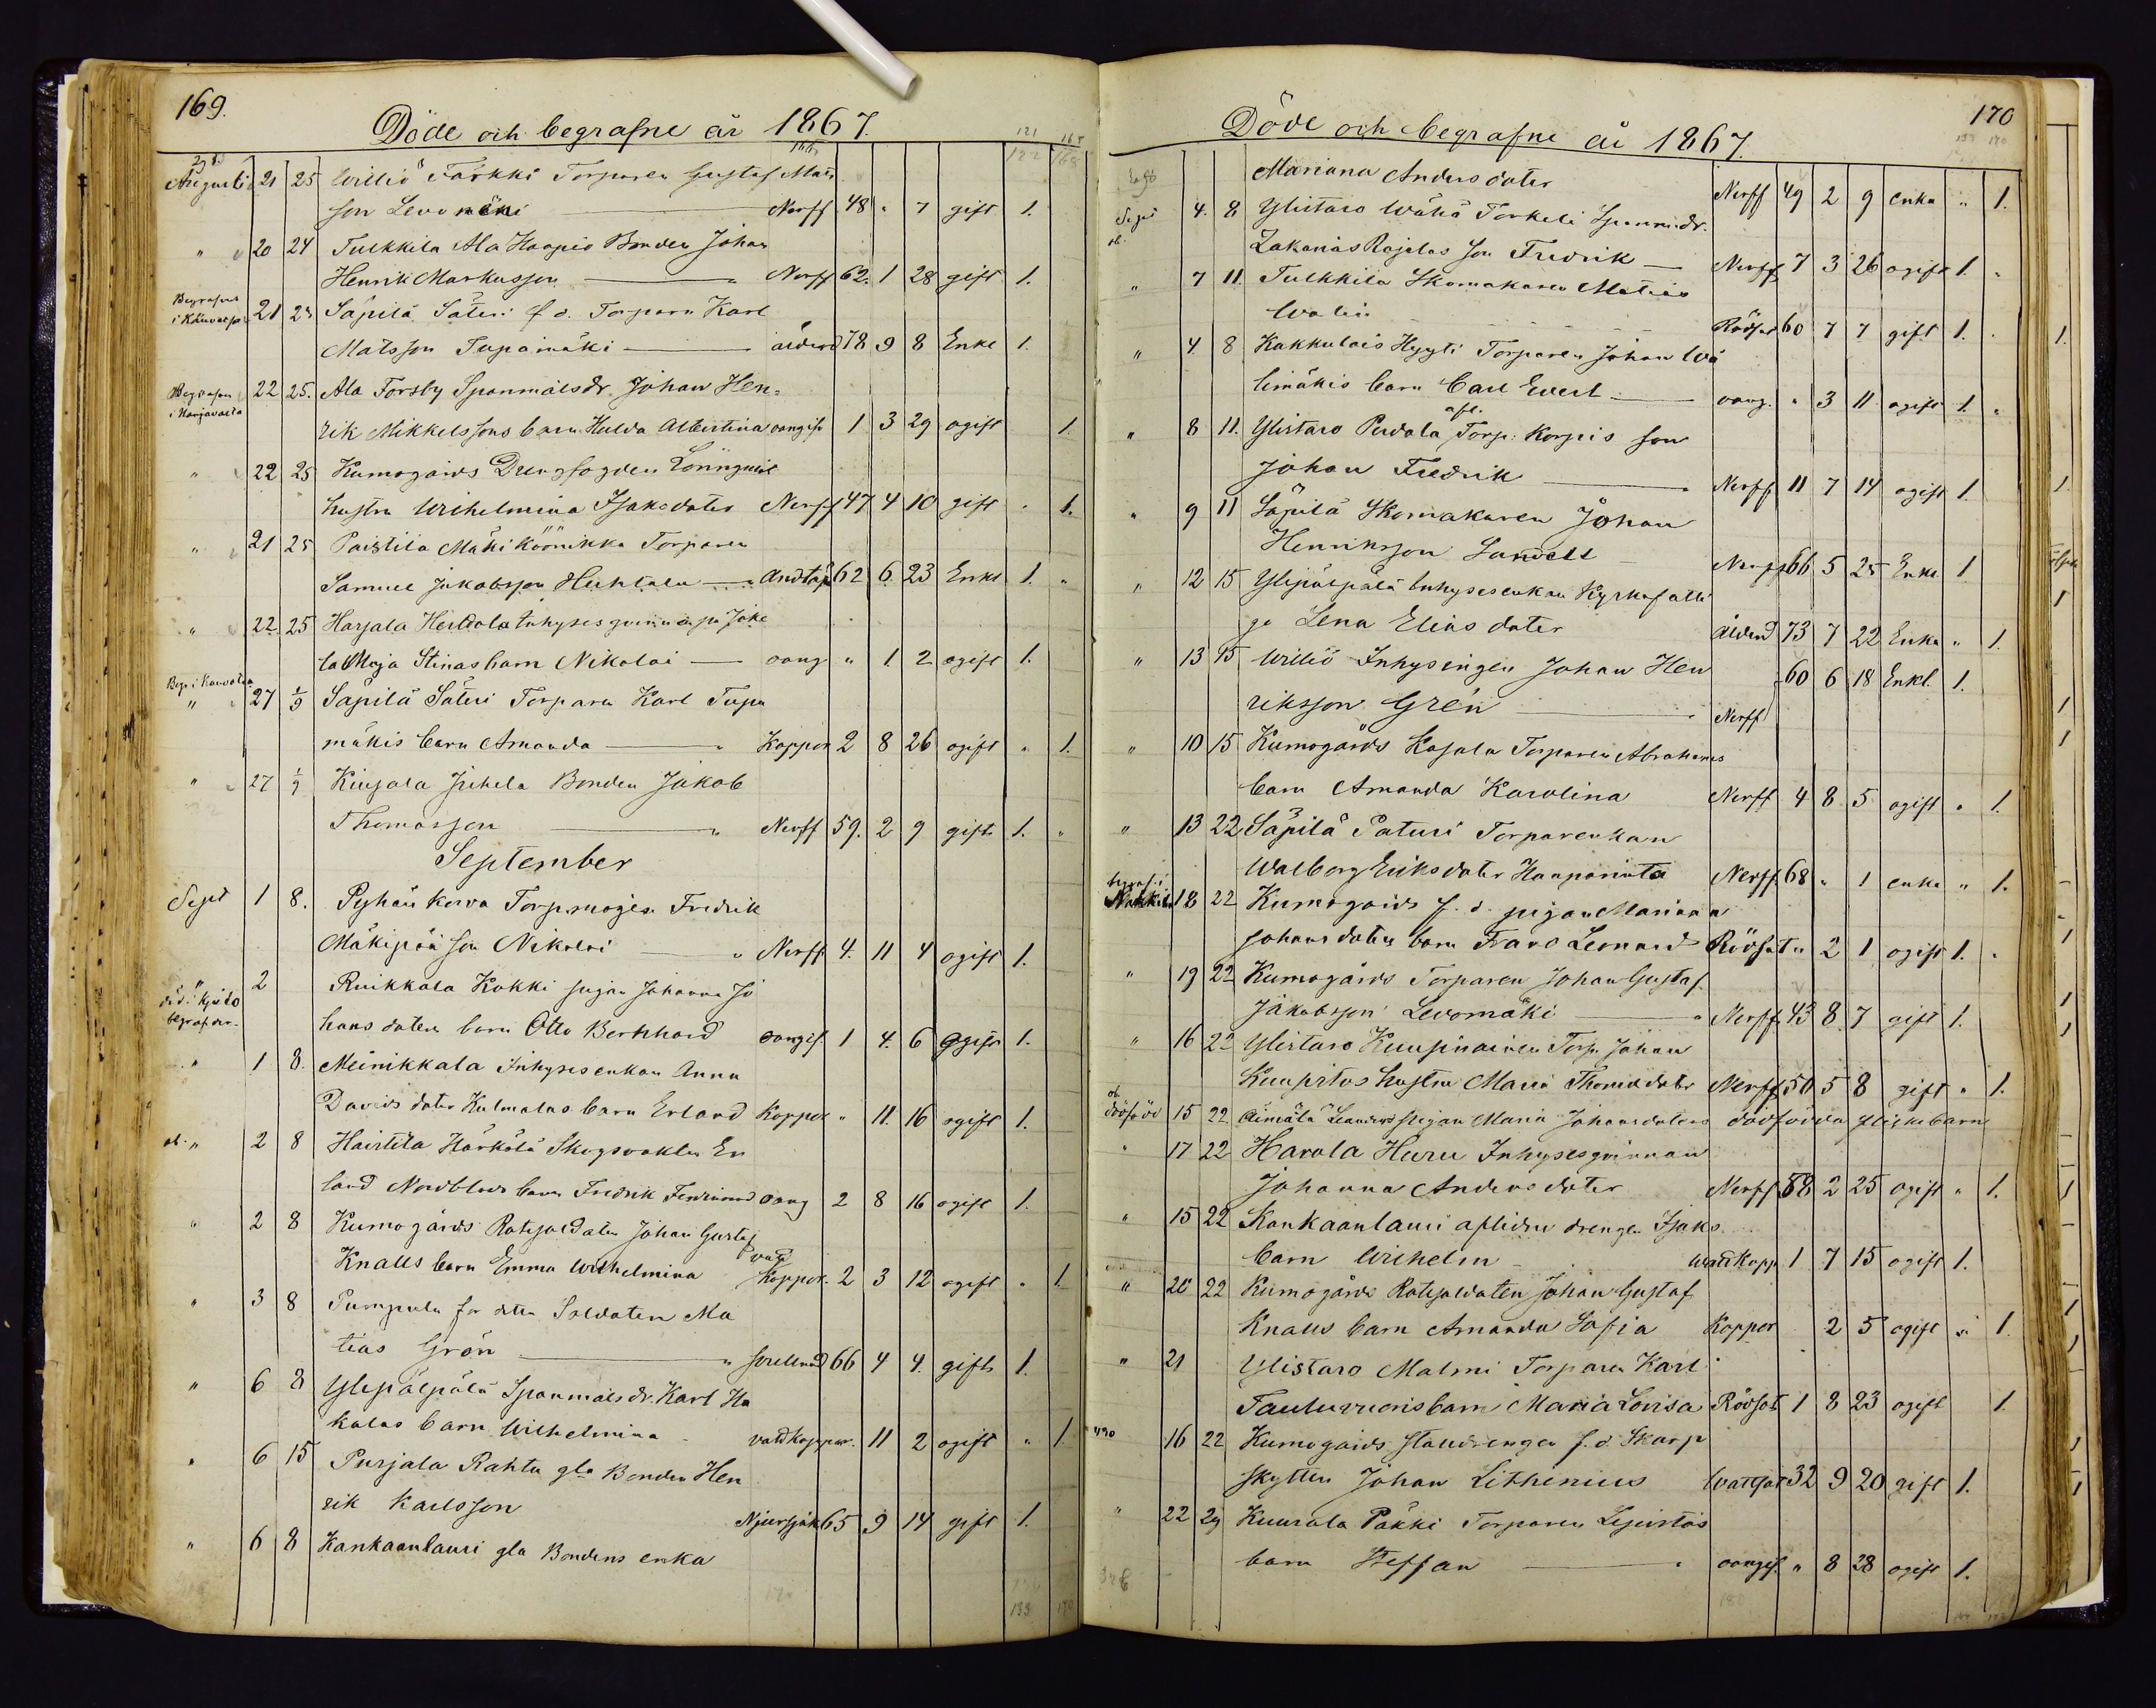 169.
Döde och begrafne år 1867.
Augusti 21 25 Williö Färkki Torparen Gustaf Mats
son Levomäki Nerff 48 " 7 gift 1.
" 20 24 Tulkkila Ala Haapio Bonden Johan
Henrik Markusson Nerff 62. 1 28 gift 1.
Begrafven i Kauvatsa 21 25 Säpilä Säteri f. d. Torparn Karl
Matsson Tupamäki ålderd 78 9 8 Enkl 1.
Begrafven i Harjavalta 22 25. Ala Forsby Spanmålsdr. Johan Hen=
rik Mikkelssons barn Hulda Albertina oangif 1 3 29 ogift 1.
" 22 25 Kumogårds Drengfogden Lönnqvist
hustru Wilhelmina Isaksdoter Nerff 47 4 10 gift " 1.
" 21 25 Paistila Mäki Köönikka Torparen
Samuel Jakobsson Huhtala Andtäp 62 6 23 Enkl 1. "
" 22 25 Harjala Heldola Inhyses qvinnan på Joke
la Maja Stinas barn Nikolai oang " 1 2 ogift 1.
Begr. i Kauvatsa " 27 1/9 Säpilä Säteri Torparn Karl Tupa
mäkis barn Amanda Koppor 2 8 26 ogift " 1.
" 27 1/9 Kiusala Juhela Bonden Jakob
Thomasson Nerff 59. 2 9 gift 1. "
September
Sept 1 8. Pyhänkorva Torp.mågen Fredrik
Mäkipää son Nikolai Nerff 4. 11 4 ogift 1.
" 2 Ruikkala Kokki pigan Johanna Jo
död i Kjulo begraf der. hans doters barn Otto Bernhard oangif 1 4. 6 ogift 1.
" 1 8. Meinikkala Inhysesenkan Anna
Davids doter Kulmalas barn Erland Koppor " 11. 16 ogift 1.
ob. " 2 8 Hairtila Härkälä Skogsvakten Er
land Nordblads barn Fredrik Ferdinand oang 2 8 16 ogift 1.
" 2 8 Kumogårds Rotesoldaten Johan Gustaf
Knalls barn Emma Wilhelmina vatt Koppor. 2 3 12 ogift " 1.
" 3 8 Pumpula för detta Soldaten Ma
tias Grön svullnad 66 4 4. gift 1.
" 6 8 Ylipälpälä Spanmålsdr. Karl Ha
kalas barn Wilhelmina vattkoppor. 11 2 ogift " 1.
" 6 15 Pirjala Rahtu gla Bonden Hen
rik Karlsson Njursjuk 65 9 14 gift 1.
" 6 8 Kankaanlauri gla Bondens enka
170
Döde och begrafne år 1867.
Mariana Anders doter Nerff 49 2 9 enka " 1.
Sept 4. 8 Ylistaro Wähä Torkeli Spanm.dr.
ob. Zakarias Rajalas son Fredrik Nerff 7 3 26 ogift 1. "
" 7 11 Tulkkila Skomakaren Matias
Walin Rödsot 60 7 7 gift 1. "
" 4. 8 Kakkulais Hyyti Torparen Johan Wä
limäkis barn Carl Evert oang. " 3 11 ogift 1. "
" 8 11. Ylistaro Perdala afl. Torp: Korpis son
Johan Fredrik Nerff 11 7 14 ogift 1
" 9 11 Säpilä Skomakaren Johan
Henriksson Sandell Nerff 66 5 25 Enkl. 1
" 12 15 Ylipälpälä Inhysesenkan Kyrkofatti
ge Lena Elias doter ålderd 73 7 22 Enka " 1.
" 13 15 Williö Inhysingen Johan Hen
riksson Grén Nerff 60 6 18 Enkl. 1.
" 10 15 Kumogårds Kasala Torparen Abrahams
barn Amanda Karolina Nerff 4 8 5 ogift " 1.
" 13 22 Säpilä Säteri Torparenkan
Walborg Eriks doter Haaparinta Nerff 68 " 1 enka " 1.
begraf. i Nakkila 18 22 Kumogårds f. d. pigan Mariana
Johans doters barn Frans Leonard Rödsot " 2 1 ogift 1. "
" 19 22 Kumogårds Torparen Johan Gustaf
Jakobsson Levomäki Nerff 43 8 7 gift 1.
" 16 22 Ylistaro Kuusinainen Torp. Johan
Kuusistos hustru Maria Thomasdoter Nerff 50 5 8 gift " 1.
ob. dödfödd 15 22 Äimälä Leanders pigan Maria Johansdoters dödfödda flickebarn
" 17 22 Harola Huru Inhysesqvinnan
Johanna Anders doter Nerff 58 2 25 ogift " 1.
" 15 22 Kankaanlauri aflidne drengen Isaks
barn Wilhelm wattkopp 1 7 15 ogift 1.
" 20 22 Kumogårds Rotesoldaten Johan Gustaf
Knalls barn Amanda Sofia Koppor 2 5 ogift " 1.
" 21 Ylistaro Malmi Torparen Karl
Tauluvuoris barn Maria Lovisa Rödsot 1 8 23 ogift 1.
16 22 Kumogårds Stalldrengen f. d. Skarp
skytten Johan Lithenius Wattsot 32 9 20 gift 1.
" 22 29 Kuurola Päkki Torparen Lepistös
barn Steffan oangif. " 8 28 ogift 1.